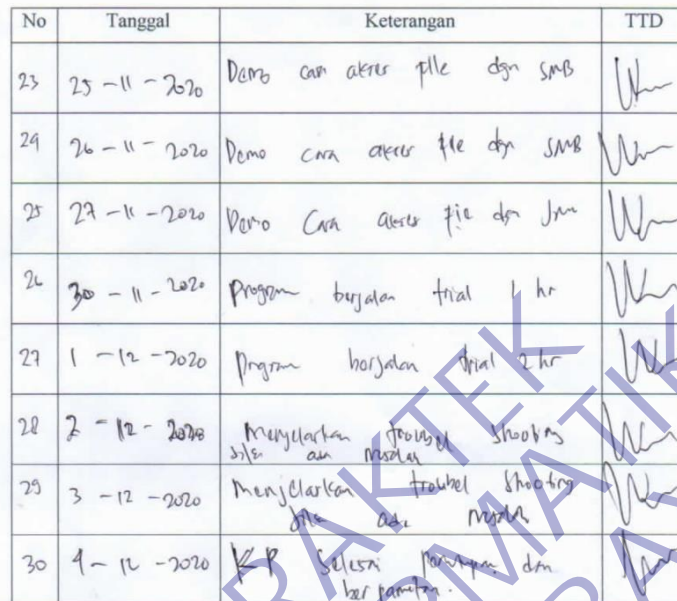 No Tanggal Keterangan TTD
23 25-11-2020 Demo cara akses file dgn SMB
24 26-11-2020 Demo cara akses file dgn SMB
25 27-11-2020 Demo Cara akses file dgn
26 30-11-2020 Program berjalan trial 1 hr
27 1-12-2020 Program berjalan trial 2 hr
28 2-12-2020 Menjelaskan troubel shooting
jika ada masalah
29 3-12-2020 Menjelaskan troubel shooting
jika ada masalah
30 4-12-2020 KP Selesai dan
berpamitan.
RAKTEK
RMATIK